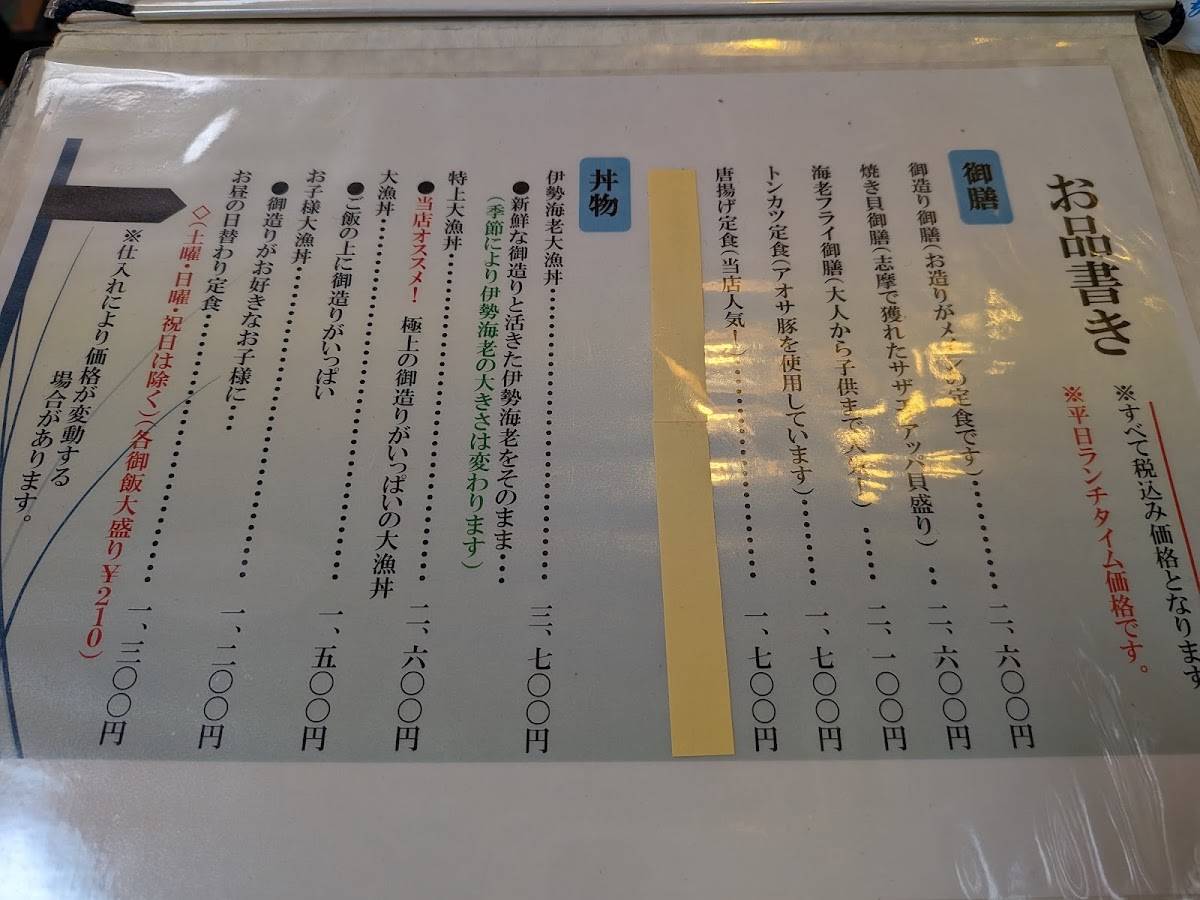 お品書き
※すべて税込み価格となります
※平日ランチタイム価格です。
御膳
御造り御膳(お造りがメインの定食です)………二、六〇〇円
焼き貝御膳(志摩で獲れたサザエアッパ貝盛り)…二、六〇〇円
海老フライ御膳(大人から子供まで人気!)……二、一〇〇円
トンカツ定食(アオサ豚を使用しています)………一、七〇〇円
唐揚げ定食(当店人気!)………………一、七〇〇円
丼物
伊勢海老大漁丼………………………三、七〇〇円
●新鮮な御造りと活きた伊勢海老をそのまま…
(季節により伊勢海老の大きさは変わります)
特上大漁丼……………………………二、六〇〇円
●当店オススメ! 極上の御造りがいっぱいの大漁丼
大漁丼…………………………………一、五〇〇円
●ご飯の上に御造りがいっぱい
お子様大漁丼…………………………一、二〇〇円
●御造りがお好きなお子様に…
お昼の日替わり定食…………………一、三〇〇円
◇(土曜・日曜・祝日は除く)(各御飯大盛り¥210)
※仕入れにより価格が変動する
場合があります。